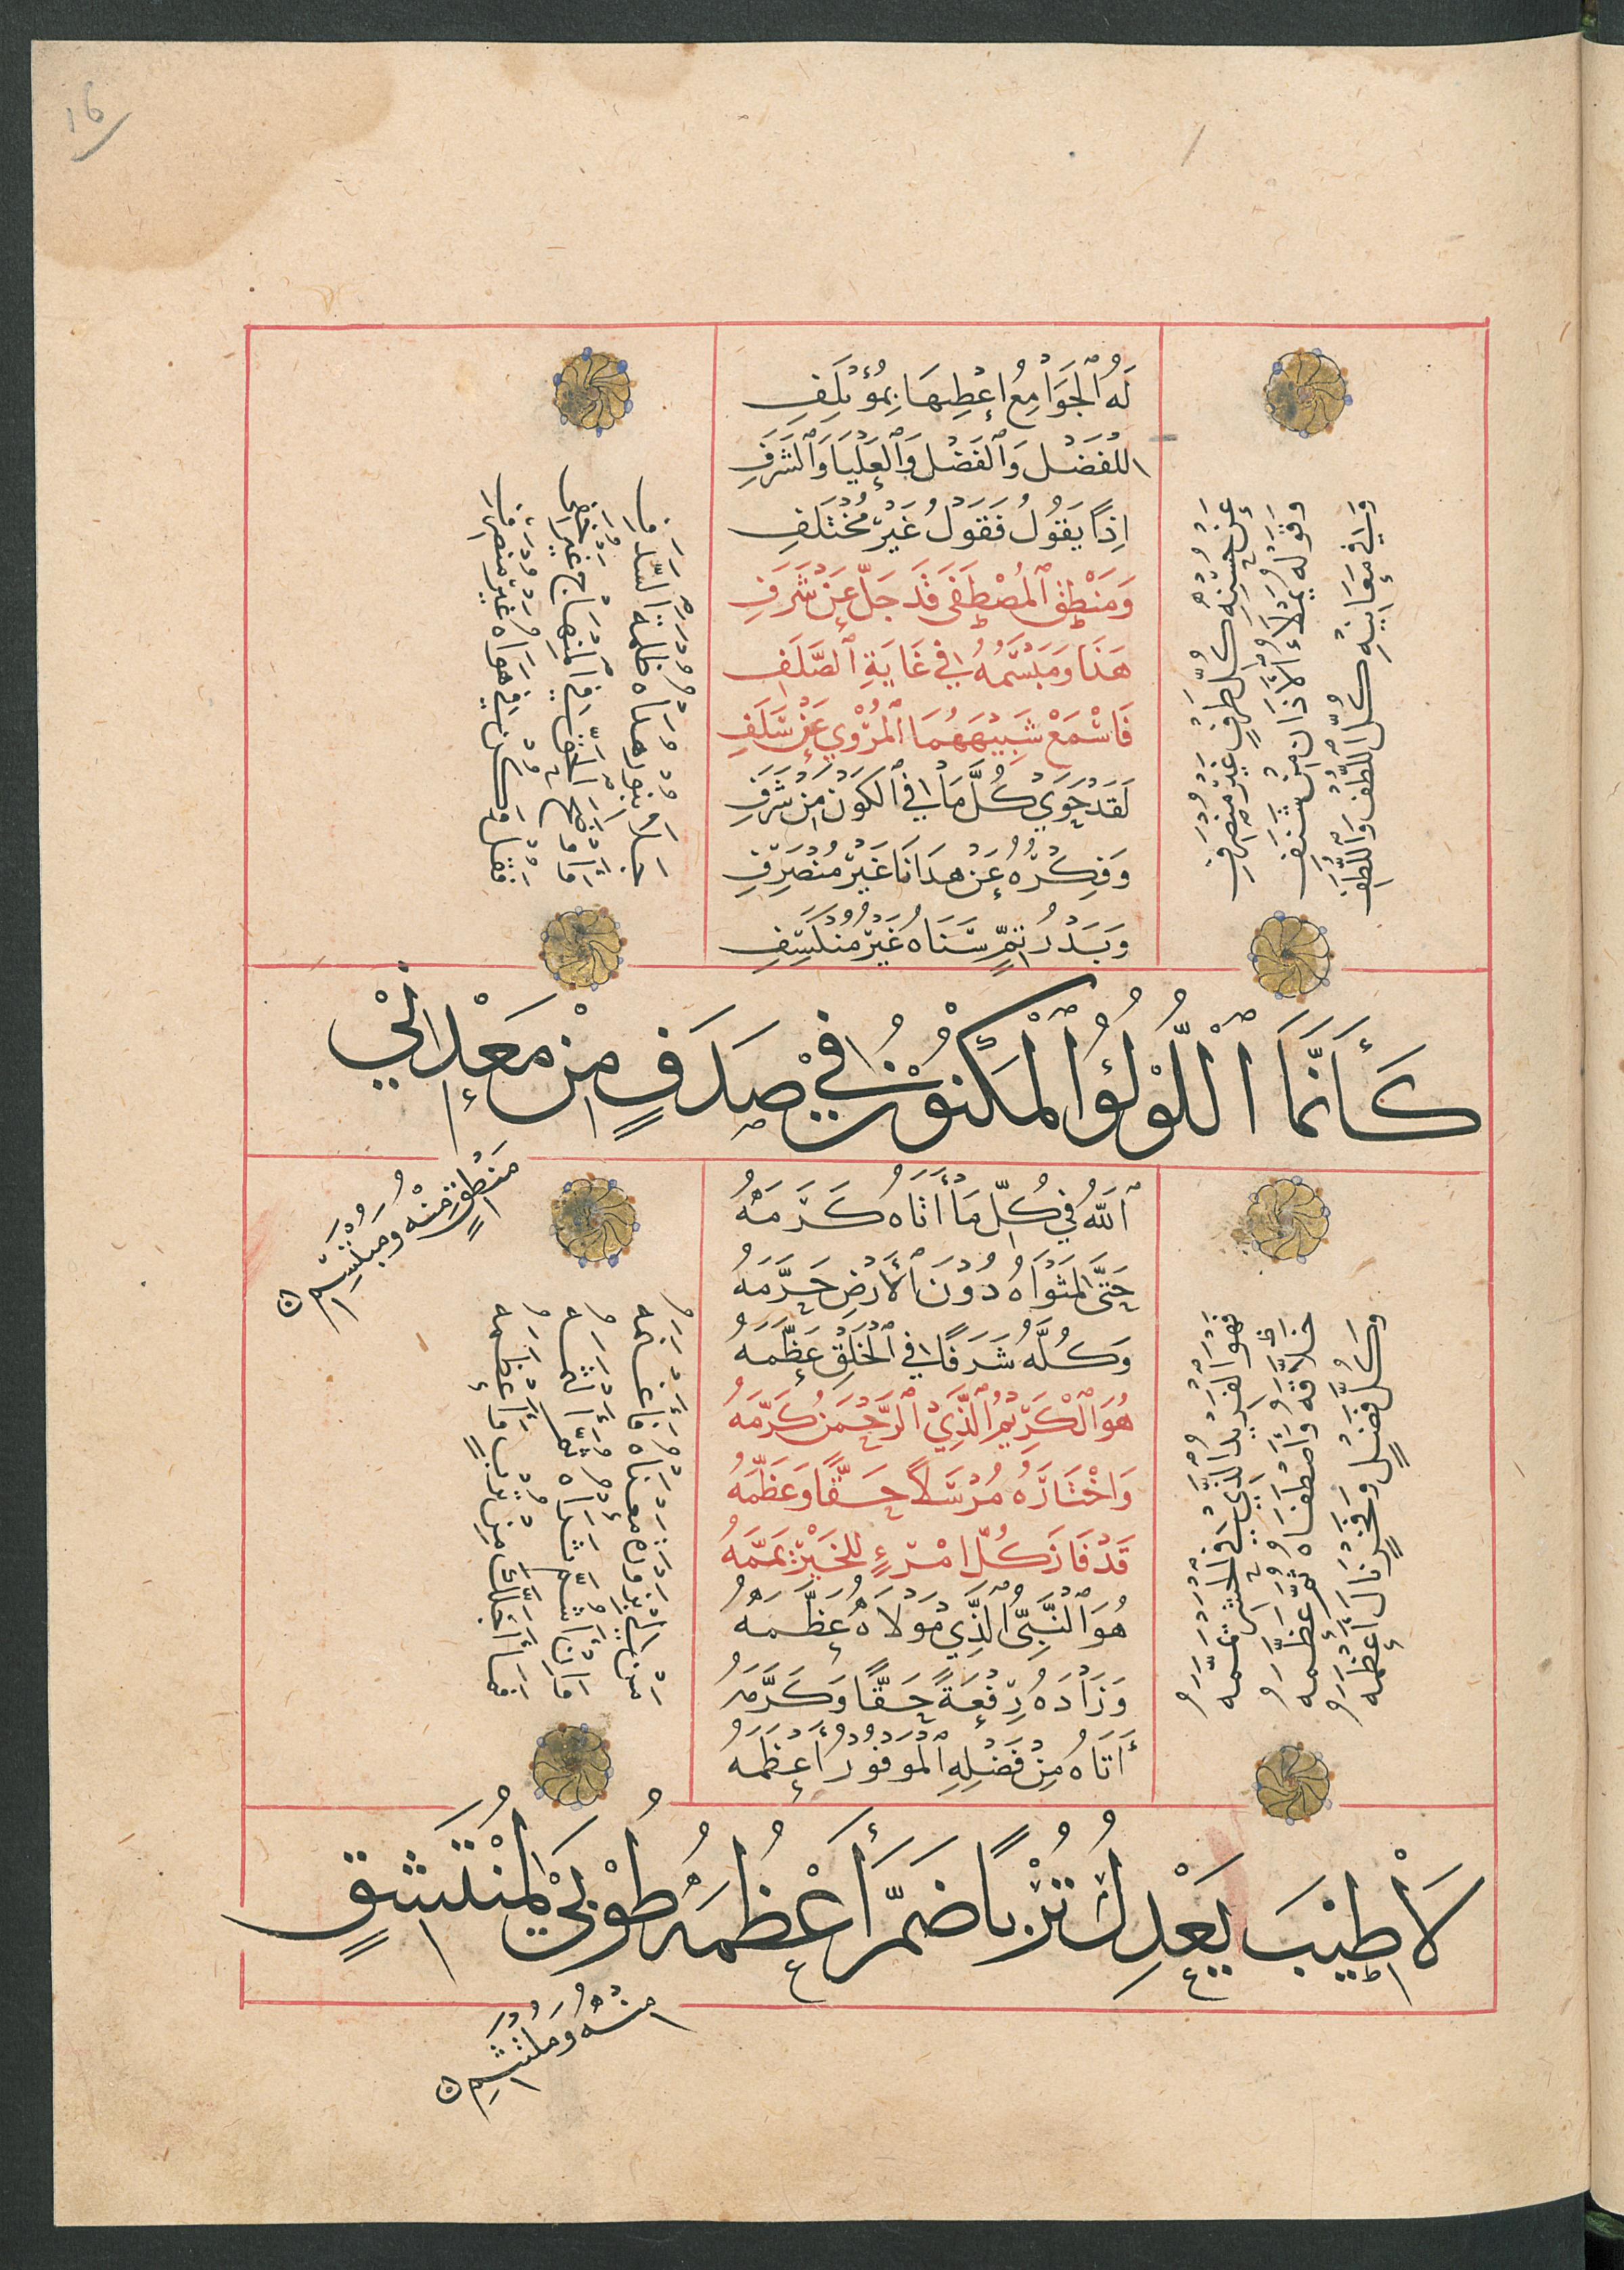 16
لَهُ ٱلْجَوَامِعُ اعْطِيهَا بِمُؤْتَلِفِ
اللفضل وَٱلْفَضْلَ وَٱلْعَلْيَا وَٱلشَّرَفِ
اِذَا يَقُولُ فَقَوْلُ غَيْرُ مُخْتَلِفِ
وَمَنْطِقُ ٱلْمُصْطَفَى قَدْ جَلَّ عَنْ شَرَفِ
هَذَا وَمَبْسَمُهُ فِي غَايَةِ ٱلصَّلَفِ
فَاسْمَعْ شَبِيهَهُمَا ٱلْمَرْوِي عَنْ سَلَفِ
لَقَدْ حَوَي كُلَّ مَا فِي ٱلْكَوْنِ مِنْ شَرَفِ
وَفِكْرُهُ عَنْ هُدَانَا غَيْرُ مُنْصَرِفِ
وَبَدْرُ تَمٍّ سَنَاهُ غَيْرُ مُنْكَسِفِ
عَنْ حُسْنِهِ كُلُّ طَرْفٍ غَيْرُ مُنْصَرِفِ
وَقَوْلُهُ يَمْلَاءُ ٱلْآذَانَ مِنْ شَنَفِ
وَفِي مَعَانِيهِ كُلُّ اللُّطْفِ وَاللُّطَفِ
جلا بنور هداه ظلمة السدف
ما وضح الحق في المنهاج غير خفي
فقل وكن في هواه غير منصرف
كَأَنَّمَا ٱللُّؤْلُؤُ ٱلْمَكْنُونُ فِي صَدَفٍ مِنْ مَعْدِنَيْ
مَنْطِقٍ مِنْهُ وَمُبْتَسَمِ
ٱللّٰهُ فِي كُلِّ مَا أَتَاهُ كَرَّمَهُ
حَتَّى لِمَثْوَاهُ دُونَ ٱلْأَرْضِ حَرَّمَهُ
وَكُلُّهُ شَرَفًا فِي ٱلْخَلْقِ عَظَّمَهُ
هُوَ ٱلْكَرِيمُ ٱلَّذِي ٱلرَّحْمَنُ كَرَّمَهُ
وَاخْتَارَهُ مُرْسَلًا حَقًّا وَعَظَّمَهُ
قَدْ فَازَ كُلُّ امْرِءٍ لِلْخَيْرِ يَمَّمَهُ
هُوَ ٱلنَّبِيُّ ٱلَّذِي مَوْلَاهُ عَظَّمَهُ
وَزَادَهُ رِفْعَةً حَقًّا وَكَرَّمَهُ
أَتَاهُ مِنْ فَضْلِهِ ٱلْمَوْفُورِ أَعْظَمَهُ
فهو الفريد الذي في الحشر
خلاقه واصطفاه ثم عظمه
وكل فضل وفخر نال أعظمه
من يزوره معناه
وان شم شذاه ثم
فما أجلك من ترب وأعظمه
لَا طِيبَ يَعْدِلُ تُرْبًا ضَمَّ أَعْظُمَهُ طُوْبَي لِمُنْتَشِقٍ
مِنْهُ وَمُلْتَثِمِ